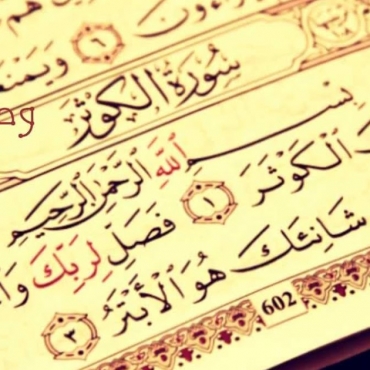 ٦
سُورَةُ الكَوْثَرِ
بِسْمِ ٱللَّهِ ٱلرَّحْمَٰنِ ٱلرَّحِيمِ
ٱلْكَوْثَرَ ١ فَصَلِّ لِرَبِّكَ
شَانِئَكَ هُوَ ٱلْأَبْتَرُ ٣
602